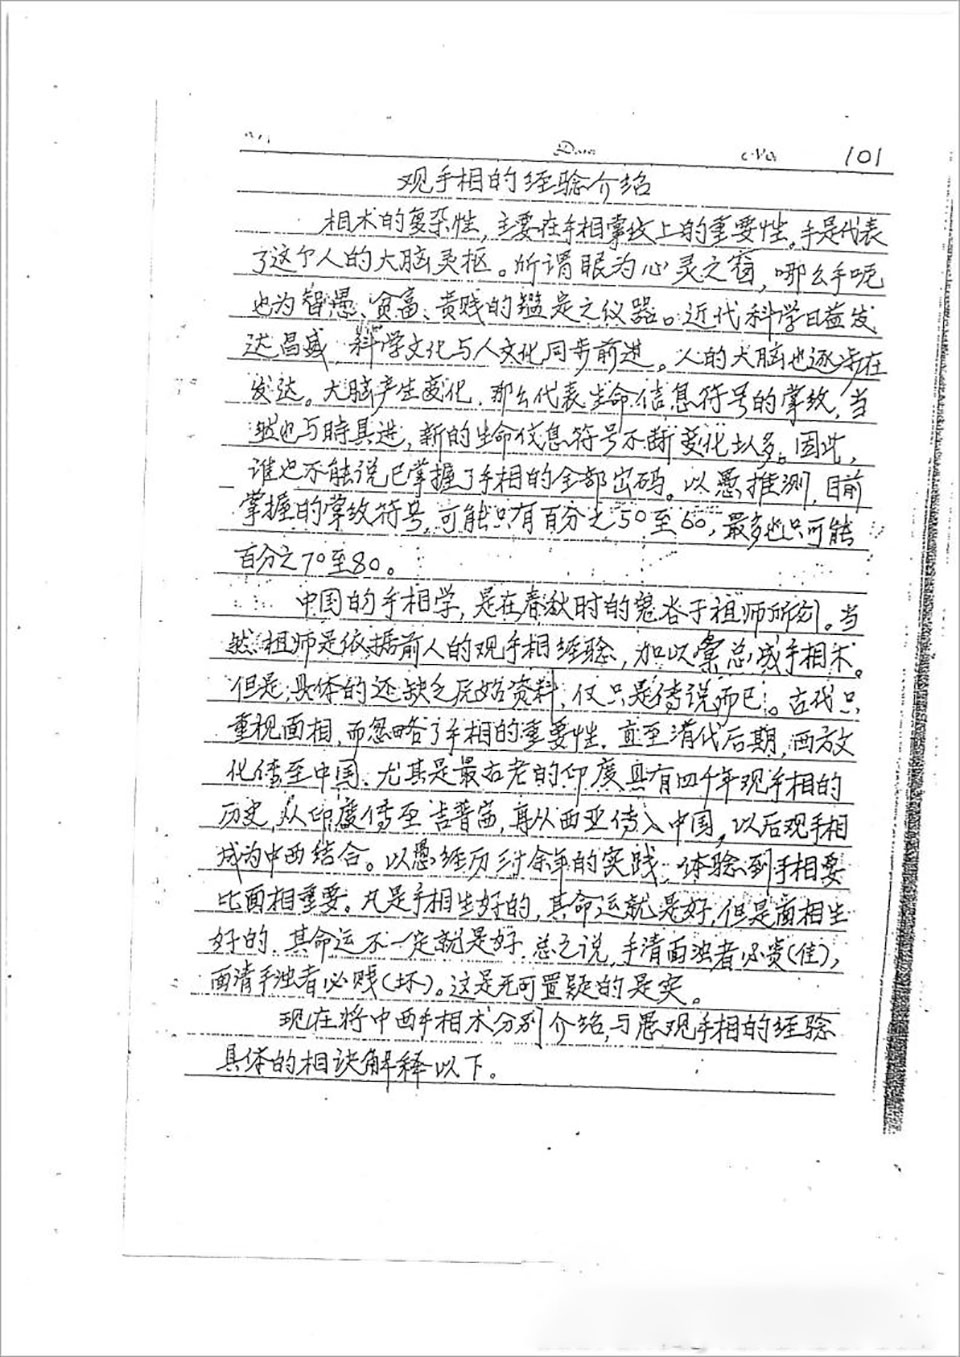 Date No. 101
观手相的经验介绍
相术的复杂性,主要在手相掌纹上的重要性。手是代表
了这个人的大脑灵枢。所谓眼为心灵之窗,哪么手呢
也为智愚、贫富、贵贱的鑑定之仪器。近代科学日益发
达昌盛,科学文化与人文化同步前进。人的大脑也逐步在
发达。大脑产生变化,那么代表生命信息符号的掌纹,当
然也与時具进,新的生命信息符号不断变化增多。因此,
谁也不能说已掌握了手相的全部密码。以愚推测,目前
掌握的掌纹符号,可能只有百分之50至60,最多也只可能
百分之70至80。
中国的手相学,是在春秋时的鬼谷子祖师所创。当
然祖师是依据前人的观手相经验,加以汇总成手相术。
但是,具体的还缺乏原始资料,仅只是传说而已。古代只
重视面相,而忽略了手相的重要性,直至清代后期,西方文
化传至中国,尤其是最古老的印度具有四千年观手相的
历史,从印度传至吉普塞,再从西亚传入中国,以后观手相
成为中西结合。以愚经历三十余年的实践,体验到手相要
比面相重要。凡是手相生好的,其命运就是好,但是面相生
好的,其命运不一定就是好,总之说,手清面浊者必贵(佳),
面清手浊者必贱(坏)。这是无可置疑的是实。
现在将中西手相术分别介绍,与愚观手相的经验
具体的相诀解释以下。